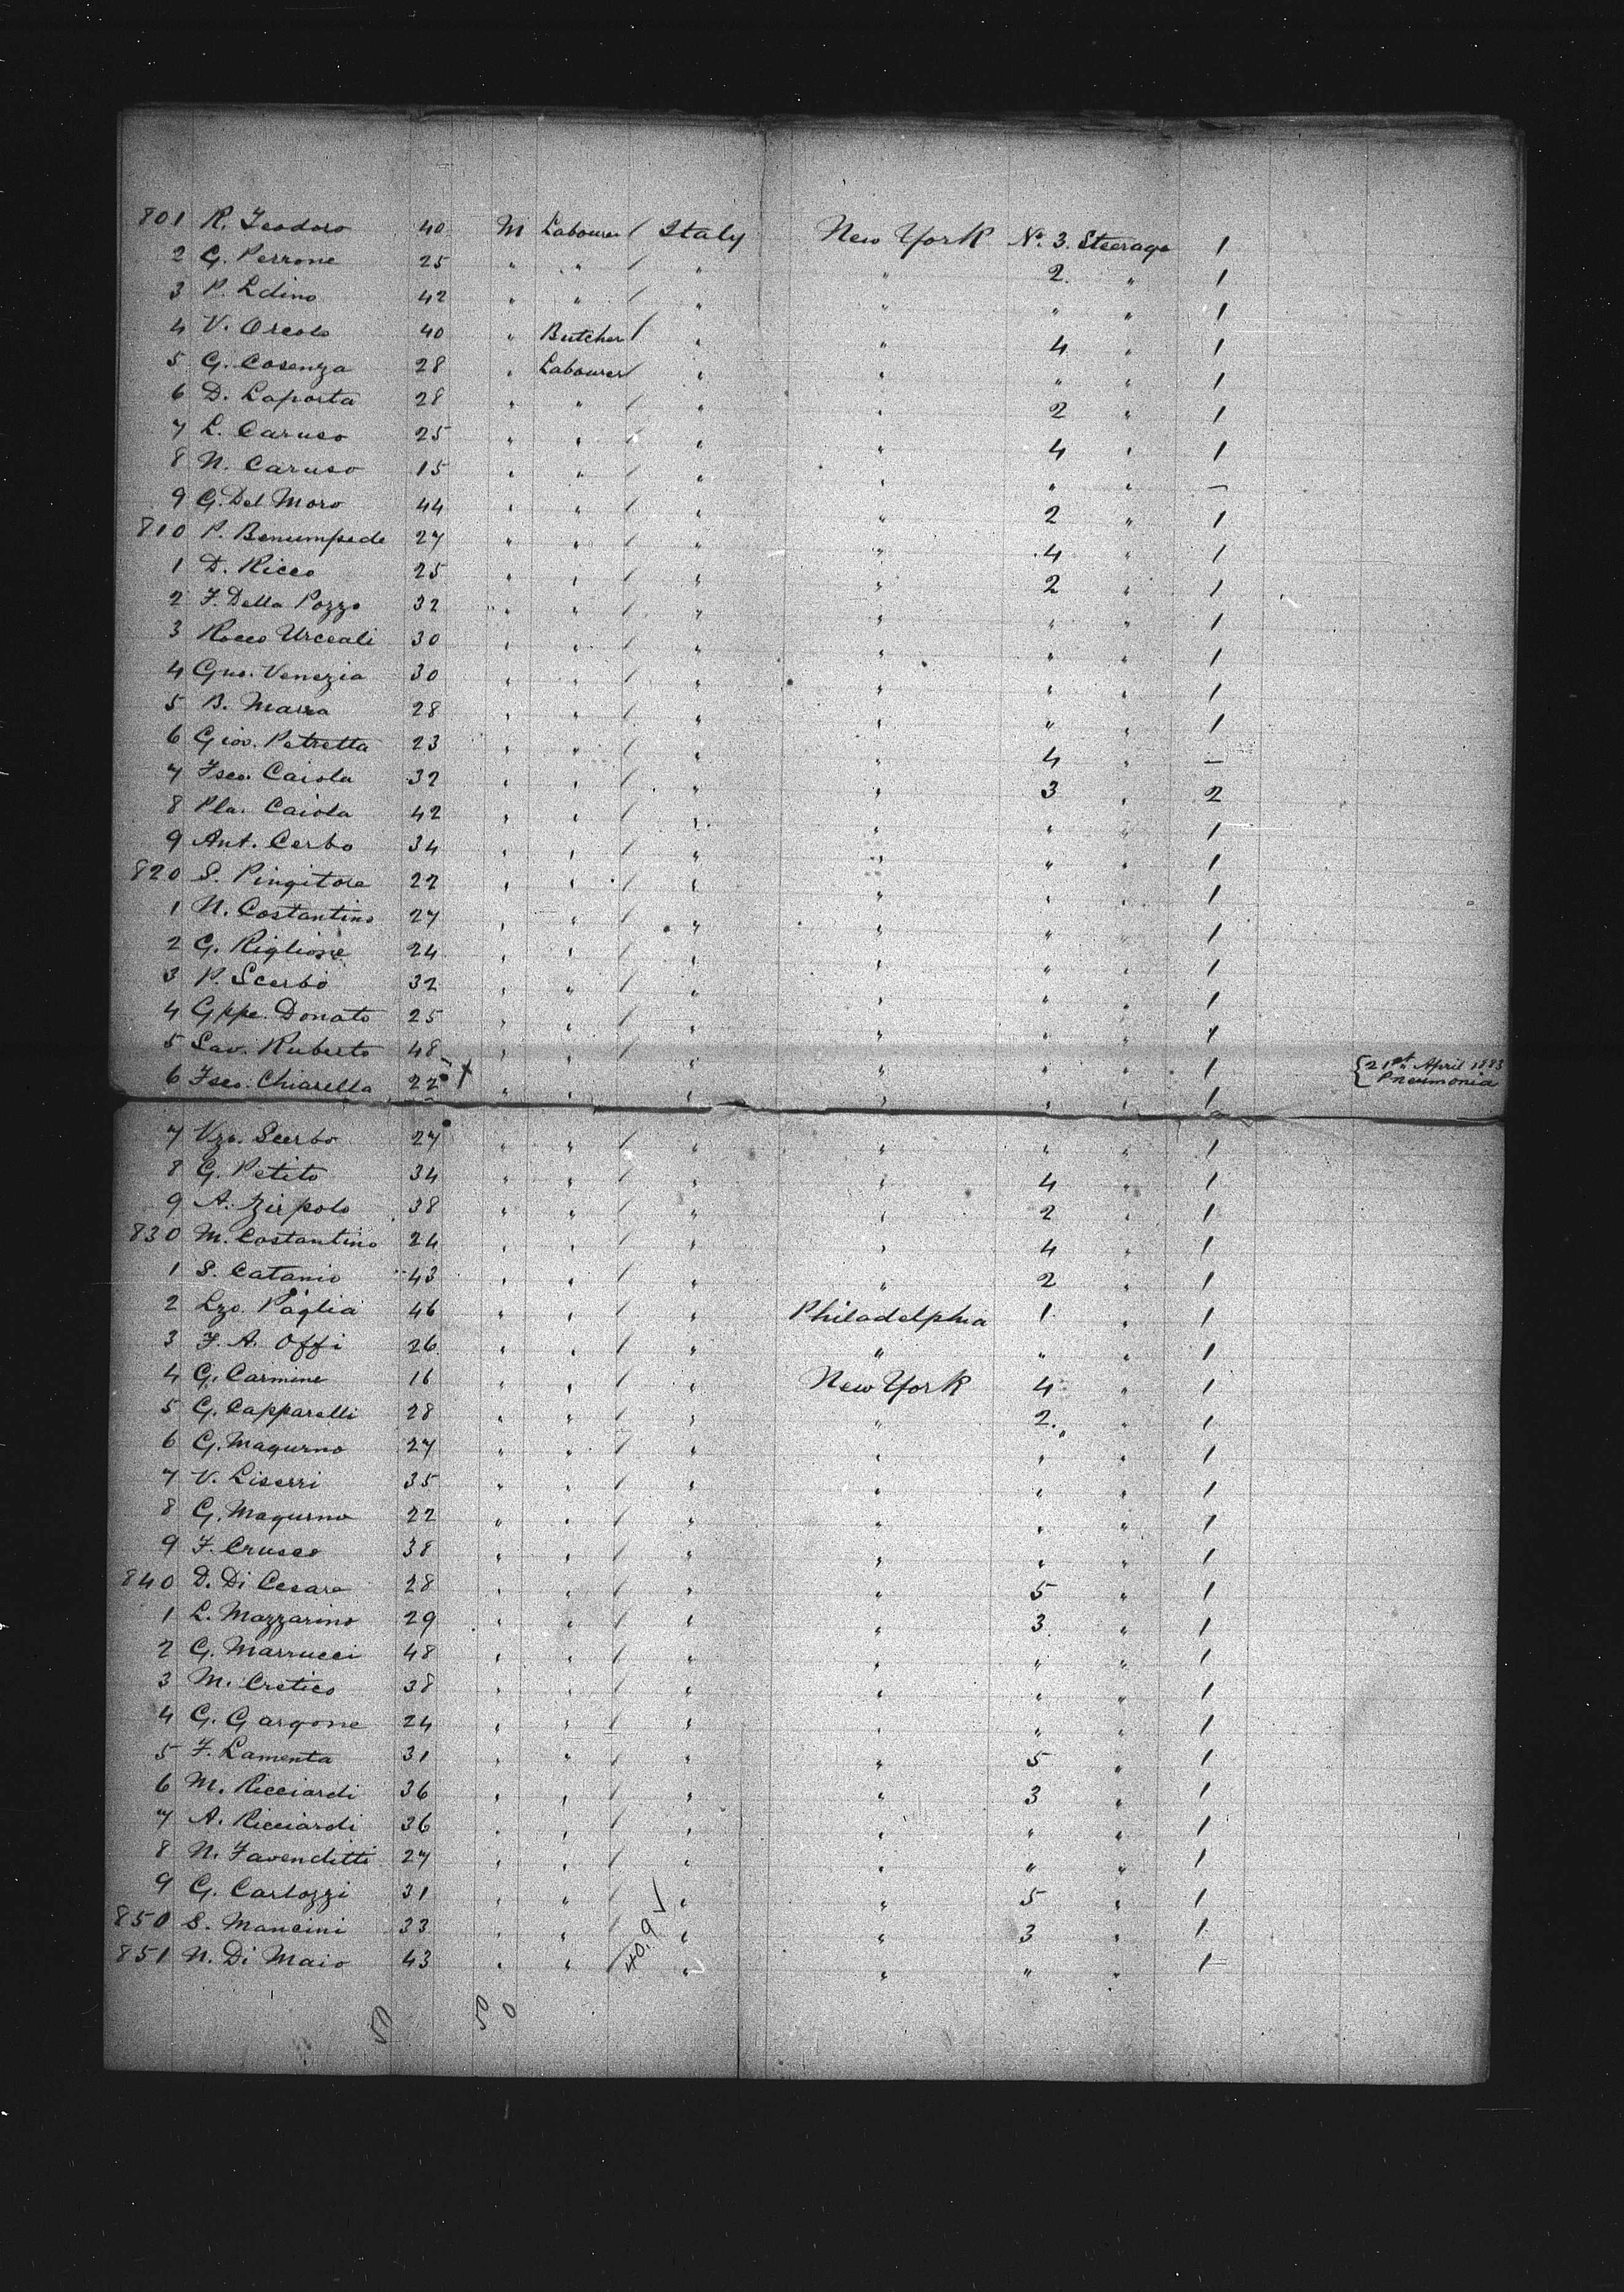 801 R. Teodoro 40 M Labourer / Italy New York No. 3. Steerage 1
2 G. Perrone 25 " " / " " 2. " 1
3 P. Ldino 42 " " / " " " " 1
4 V. Orcolo 40 " Butcher / " " 4 " 1
5 G. Cosenza 28 " Labourer / " " " " 1
6 D. Laporta 28 " " / " " 2 " 1
7 L. Caruso 25 " " / " " 4 " 1
8 N. Caruso 15 " " / " " " " —
9 G. Del Moro 44 " " / " " 2 " 1
810 P. Benumpede 27 " " / " " 4 " 1
1 D. Ricco 25 " " / " " 2 " 1
2 F. Della Pozzo 32 " " / " " " " 1
3 Rocco Urceali 30 " " / " " " " 1
4 Gus. Venezia 30 " " / " " " " 1
5 B. Marra 28 " " / " " " " 1
6 Giov. Petretta 23 " " / " " 4 " —
7 Fsco. Caiola 32 " " / " " 3 " 2
8 Pla. Caiola 42 " " / " " " " 1
9 Ant. Cerbo 34 " " / " " " " 1
820 S. Pingitore 22 " " / " " " " 1
1 N. Costantino 27 " " / " " " " 1
2 G. Riglione 24 " " / " " " " 1
3 P. Scerbo 32 " " / " " " " 1
4 Gppe. Donato 25 " " / " " " " 1
5 Sav. Ruberto 48 " " / " " " " 1
6 Fsco. Chiarella 22 + " " " " " " 1 {21st April 1883 Pneumonia
7 Vzo. Scerbo 27 " " / " " " " 1
8 G. Petito 34 " " / " " 4 " 1
9 A. Zirpolo 38 " " / " " 2 " 1
830 M. Costantino 24 " " / " " 4 " 1
1 S. Catanio 43 " " / " " 2 " 1
2 Lzo. Paglia 46 " " / " Philadelphia 1. " 1
3 F. A. Offi 26 " " / " " " " 1
4 G. Carmine 16 " " / " New York 4 " 1
5 G. Capparelli 28 " " / " " 2. " 1
6 G. Magurno 27 " " / " " " " 1
7 V. Liserri 35 " " / " " " " 1
8 G. Magurno 22 " " / " " " " 1
9 F. Crusco 38 " " / " " " " 1
840 D. Di Cesare 28 " " / " " 5 " 1
1 L. Mazzarino 29 " " / " " 3 " 1
2 G. Marrucci 48 " " / " " " " 1
3 M. Cretico 38 " " / " " " " 1
4 G. Gargone 24 " " / " " " " 1
5 F. Lamenta 31 " " / " " 5 " 1
6 M. Ricciardi 36 " " / " " 3 " 1
7 A. Ricciardi 36 " " / " " " " 1
8 N. Favenditti 27 " " / " " " " 1
9 G. Carlozzi 31 " " / " " 5 " 1
850 S. Mancini 33 " " / " " 3 " 1
851 N. Di Maio 43 " " / " " " " 1
40.9 ✓
50 50 0